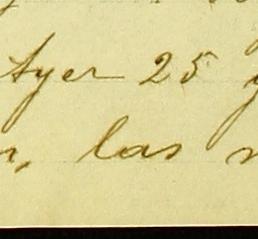 tyer 25 y
, las